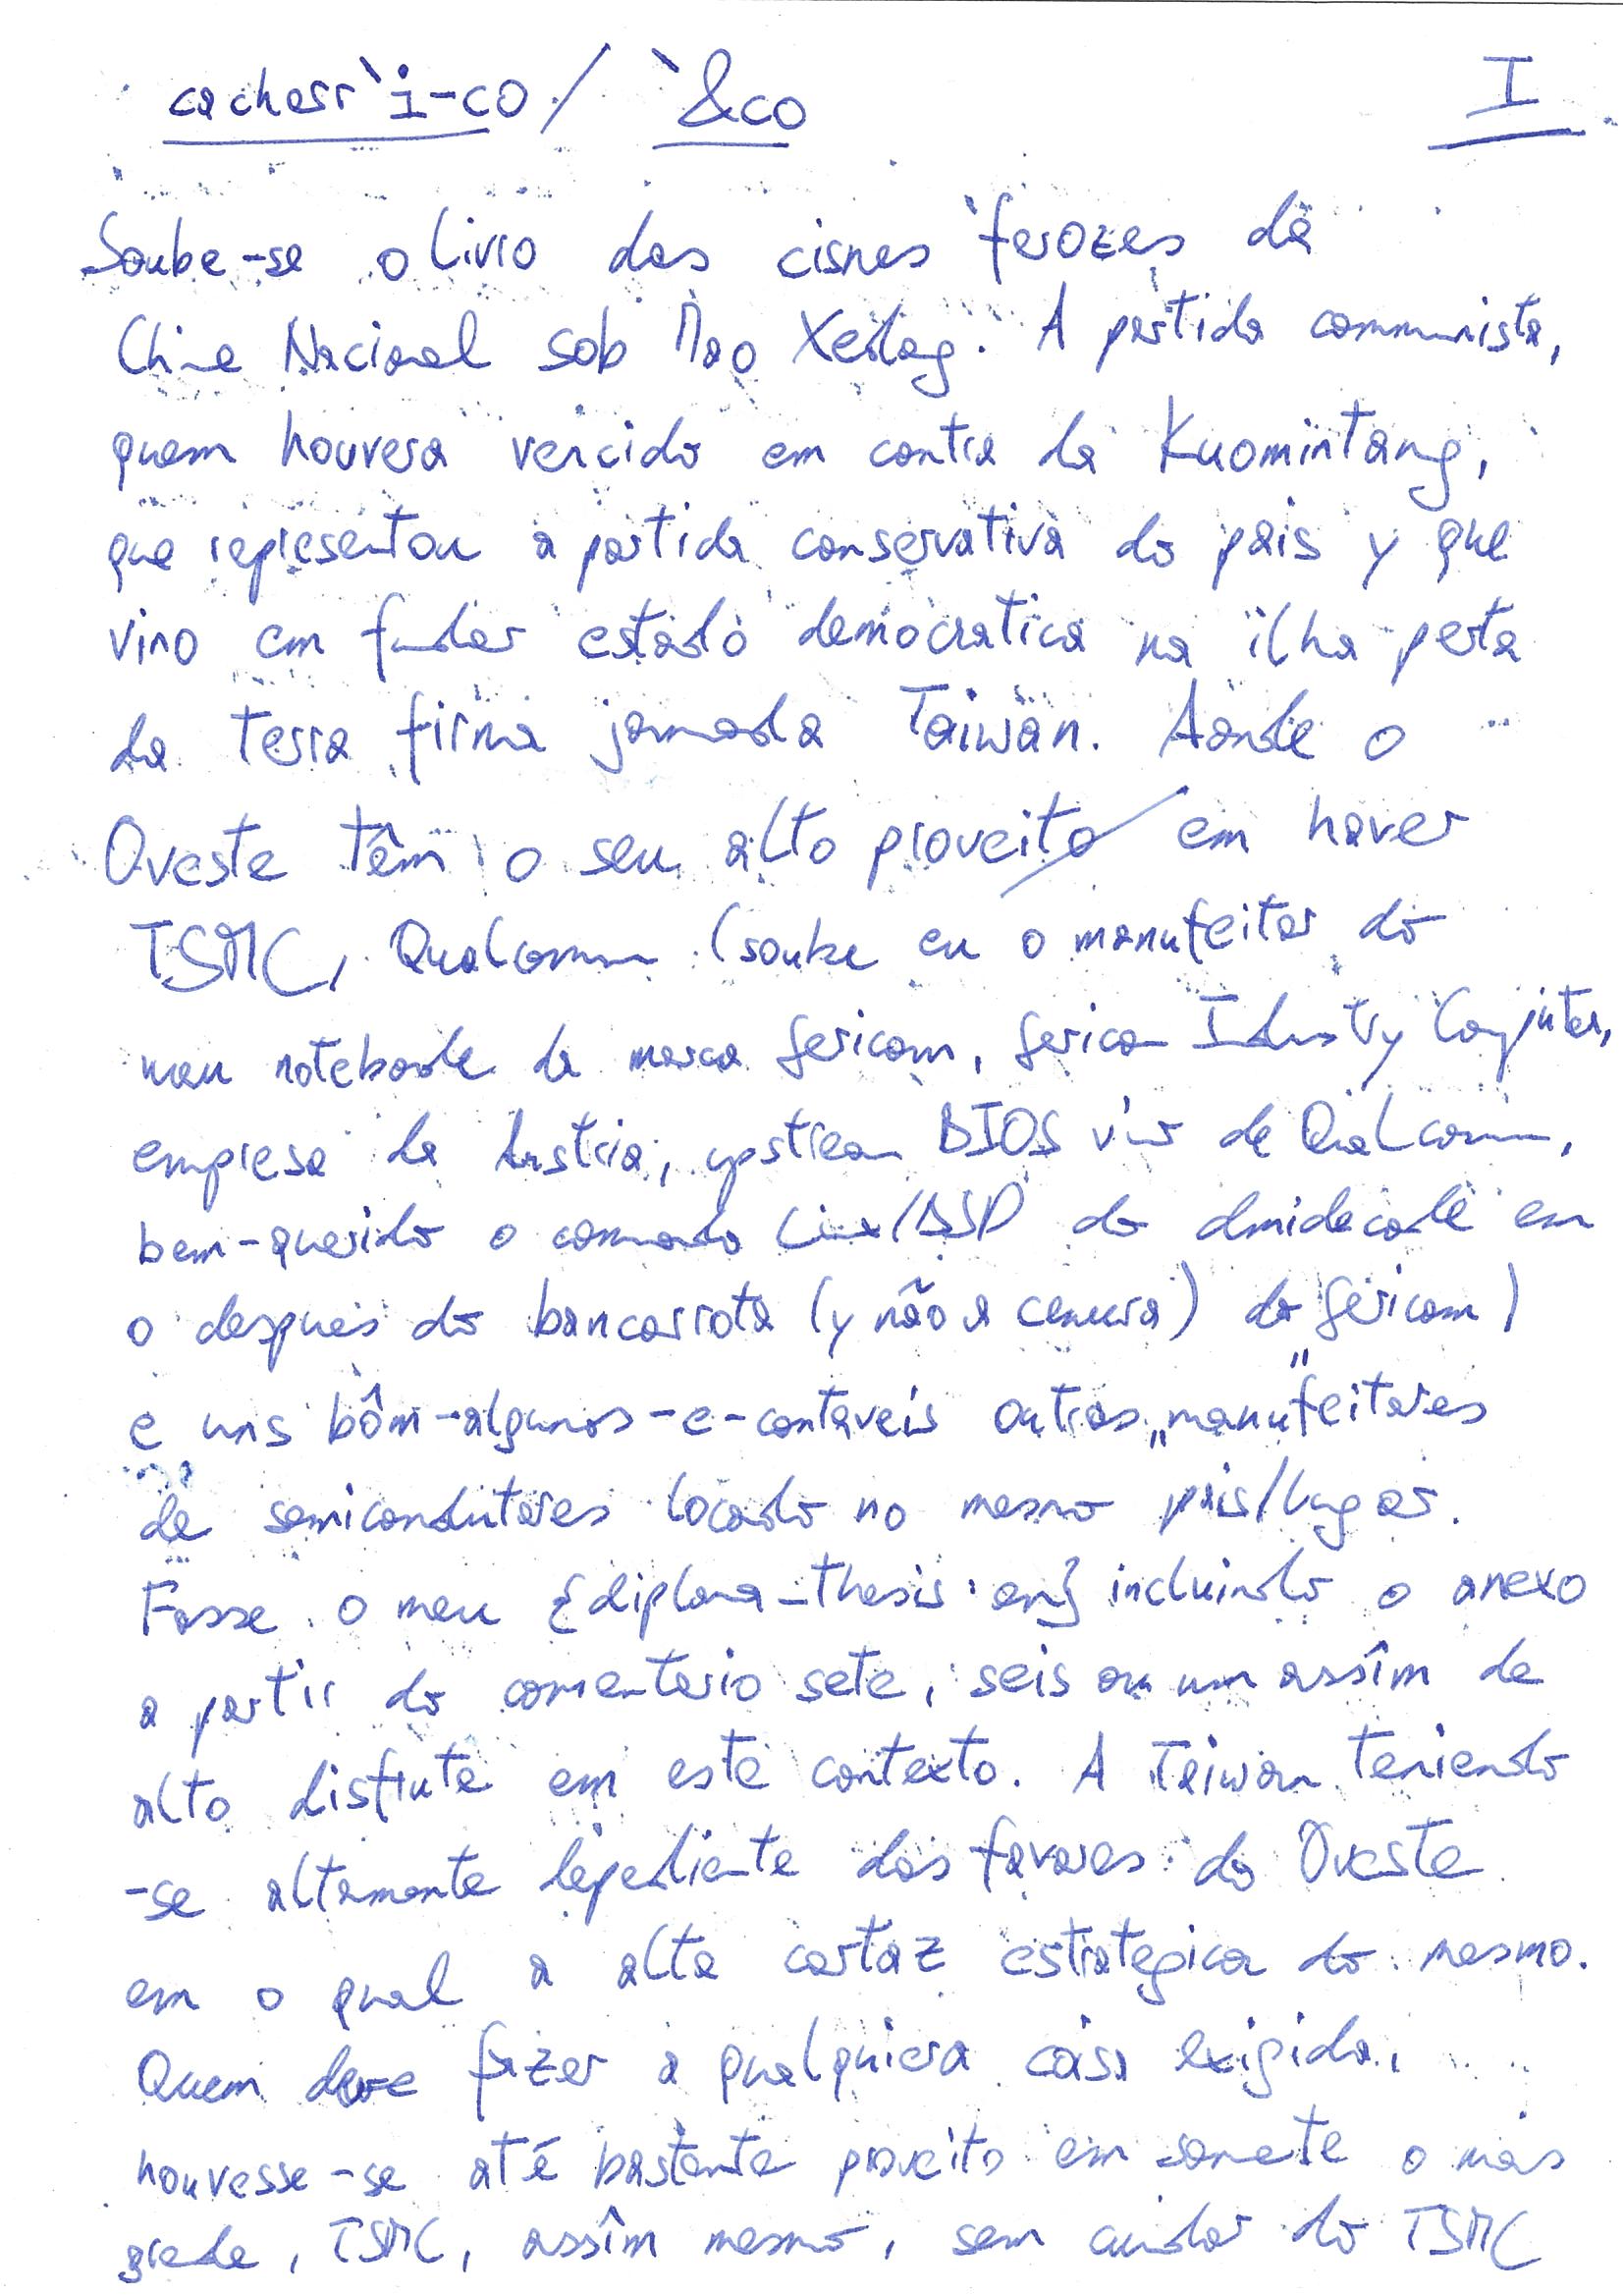 cacherr`i-co / `&co I
Soube-se o livro dos cisnes ferozes da
China Nacional sob Mao Xedong. A partida communista,
quem houvera vencido em contra da Kuomintang,
que representou a partida conservativa do pais y que
vino em fundar estado democratica na ilha perta
da terra firma jamada Taiwan. Aonde o
Oveste têm o seu alto proveito em haver
TSMC, Qualcomm (soube eu o manufeitor do
meu notebook de marca Gericom, Gericom Industry Computer,
empresa da Austria, upstream BIOS vir de Qualcomm,
bem-querido o comando Linux/BSD do dmidecode em
o despues do bancarrota (y não a censura) do Gericom)
e uns bôm-algunos-e-contaveis outros „manufeitores"
de semicondutores locado no mesmo pais/lugar.
Fosse o meu {diploma-thesis:en} incluindo o anexo
a partir do comentario sete, seis ou um assîm de
alto disfrute em este contexto. A Taiwan teniendo
-se altamente dependiente dos favores do Oveste
em o qual a alta cartaz estrategica do mesmo.
Quem deve fazer a qualquiera coisa exigida,
houvesse-se até bastante proveito em somete o mas
grade, TSMC, assîm mesmo, sem cuidar do TSMC